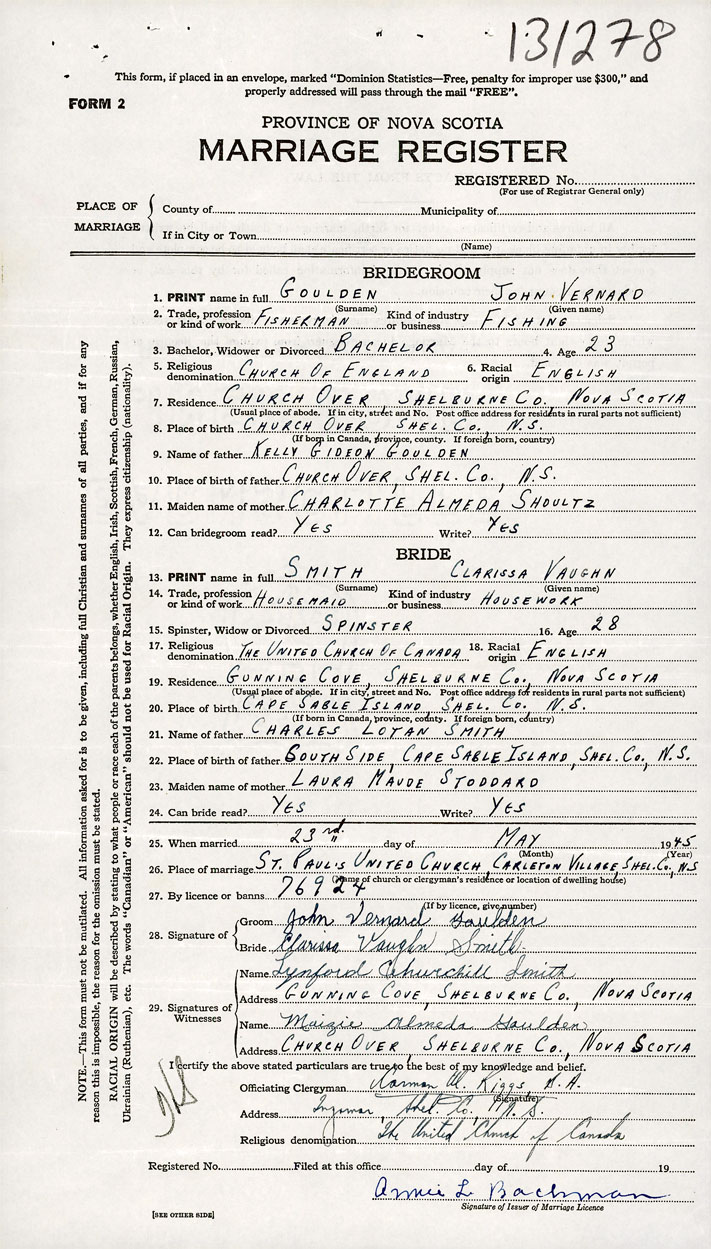 131278
This form, if placed in an envelope, marked "Dominion Statistics—Free, penalty for improper use $300," and
properly addressed will pass through the mail "FREE".
FORM 2
PROVINCE OF NOVA SCOTIA
MARRIAGE REGISTER
REGISTERED No.
(For use of Registrar General only)
PLACE OF MARRIAGE
County of Municipality of
If in City or Town
(Name)
BRIDEGROOM
1. PRINT name in full GOULDEN JOHN VERNARD
(Surname) (Given name)
2. Trade, profession or kind of work FISHERMAN Kind of industry or business FISHING
3. Bachelor, Widower or Divorced BACHELOR 4. Age 23
5. Religious denomination CHURCH OF ENGLAND 6. Racial origin ENGLISH
7. Residence CHURCH OVER, SHELBURNE CO., NOVA SCOTIA
(Usual place of abode. If in city, street and No. Post office address for residents in rural parts not sufficient)
8. Place of birth CHURCH OVER, SHEL. CO., N.S.
(If born in Canada, province, county. If foreign born, country)
9. Name of father KELLY GIDEON GOULDEN
10. Place of birth of father CHURCH OVER, SHEL. CO., N.S.
11. Maiden name of mother CHARLOTTE ALMEDA SHOULTZ
12. Can bridegroom read? YES Write? YES
BRIDE
13. PRINT name in full SMITH CLARISSA VAUGHN
(Surname) (Given name)
14. Trade, profession or kind of work HOUSEMAID Kind of industry or business HOUSEWORK
15. Spinster, Widow or Divorced SPINSTER 16. Age 28
17. Religious denomination THE UNITED CHURCH OF CANADA 18. Racial origin ENGLISH
19. Residence GUNNING COVE, SHELBURNE CO., NOVA SCOTIA
(Usual place of abode. If in city, street and No. Post office address for residents in rural parts not sufficient)
20. Place of birth CAPE SABLE ISLAND, SHEL. CO., N.S.
(If born in Canada, province, county. If foreign born, country)
21. Name of father CHARLES LOTAN SMITH
22. Place of birth of father SOUTH SIDE, CAPE SABLE ISLAND, SHEL. CO., N.S.
23. Maiden name of mother LAURA MAUDE STODDARD
24. Can bride read? YES Write? YES
25. When married 23rd day of MAY 1945
(Month) (Year)
26. Place of marriage ST. PAUL'S UNITED CHURCH, CARLETON VILLAGE, SHEL. CO., N.S
(Name of church or clergyman's residence or location of dwelling house)
27. By licence or banns 76924
(If by licence, give number)
28. Signature of
Groom John Vernard Goulden
Bride Clarissa Vaughn Smith
29. Signatures of Witnesses
Name Lynford Churchill Smith
Address GUNNING COVE, SHELBURNE CO., NOVA SCOTIA
Name Maizie Almeda Goulden
Address CHURCH OVER, SHELBURNE CO., NOVA SCOTIA
I certify the above stated particulars are true to the best of my knowledge and belief.
Officiating Clergyman Norman W. Riggs, M.A.
(Signature)
Address Ingomar, Shel. Co., N.S.
Religious denomination The United Church of Canada
Registered No. Filed at this office day of 19
Annie L. Bachman
Signature of Issuer of Marriage Licence
[SEE OTHER SIDE]
NOTE.—This form must not be mutilated. All information asked for is to be given, including full Christian and surnames of all parties, and if for any
reason this is impossible, the reason for the omission must be stated.
RACIAL ORIGIN will be described by stating to what people or race each of the parents belongs, whether English, Irish, Scottish, French, German, Russian,
Ukrainian (Ruthenian), etc. The words "Canadian" or "American" should not be used for Racial Origin. They express citizenship (nationality).